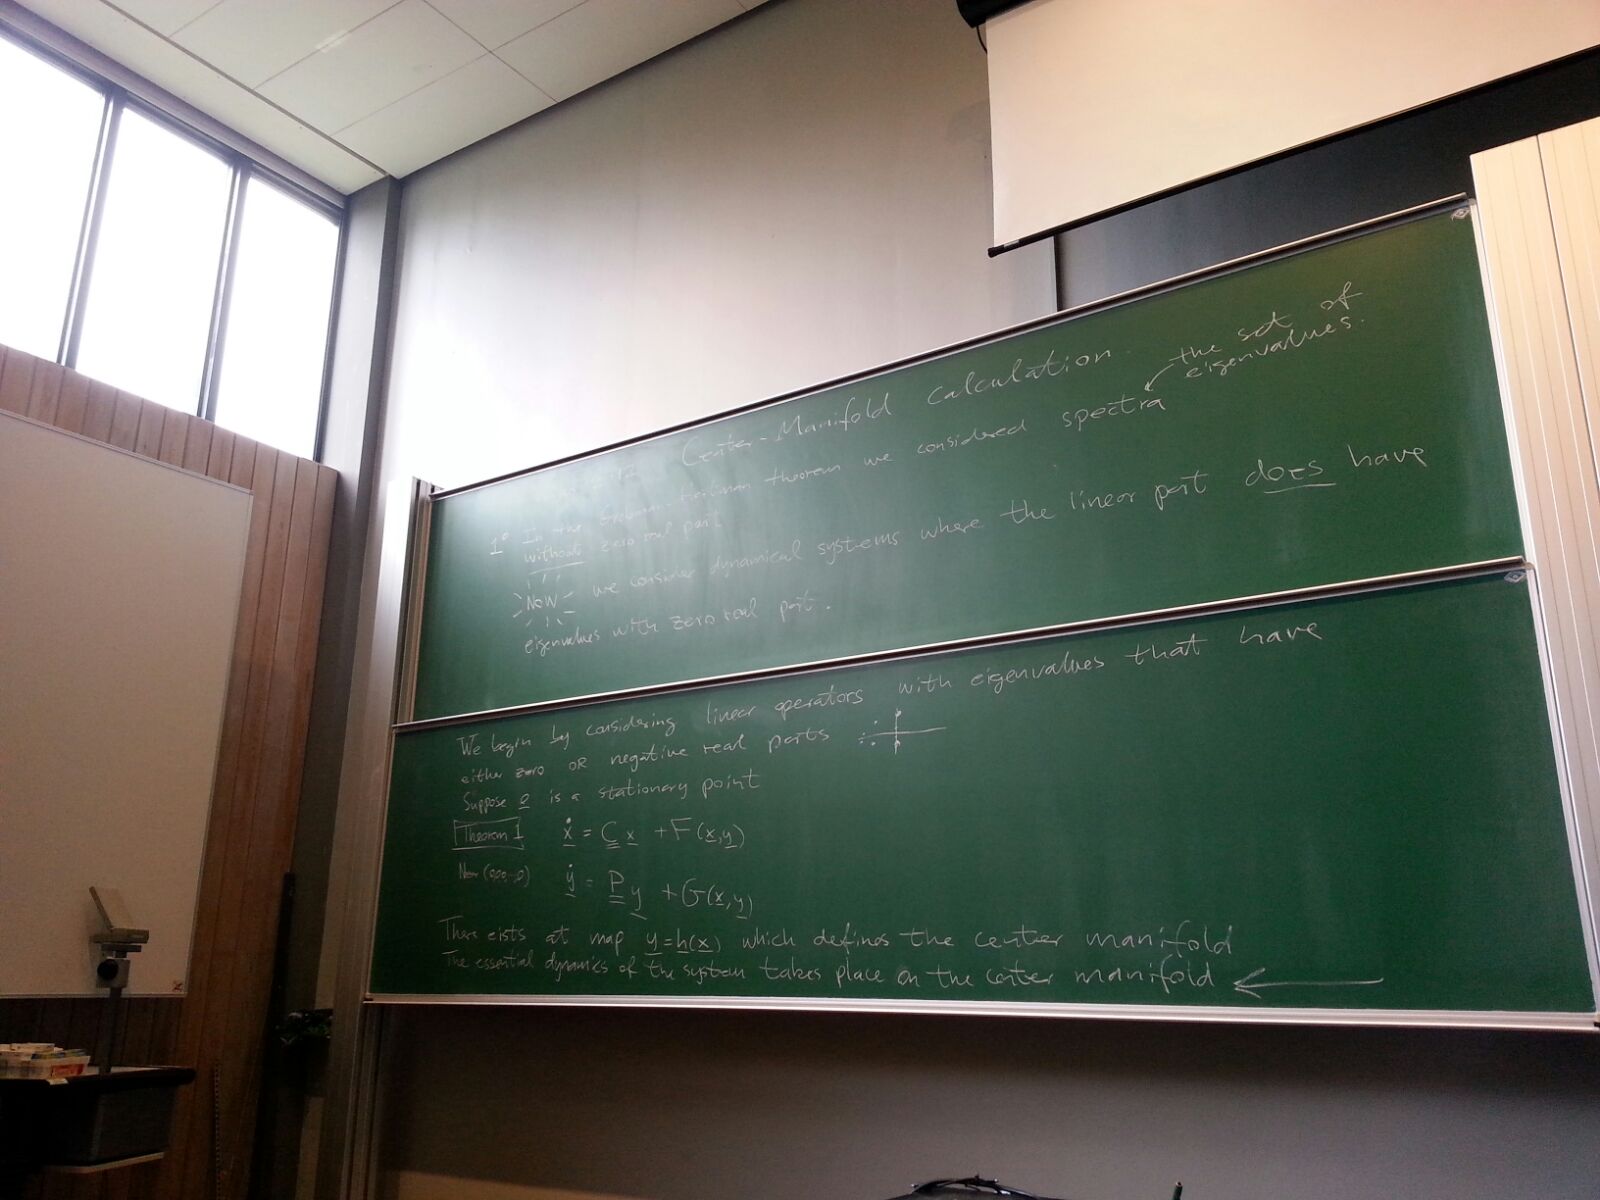 Center-Manifold calculation
the set of
eigenvalues.
1° In the Grobman-Hartman theorem we considered spectra
without zero real part
NOW we consider dynamical systems where the linear part does have
eigenvalues with zero real part.
We begin by considering linear operators with eigenvalues that have
either zero OR negative real parts
Suppose 0 is a stationary point
Theorem 1 ẋ = C x + F(x,y)
Near ẏ = P y + G(x,y)
There eists at map y=h(x) which defines the center manifold
The essential dynamics of the system takes place on the center manifold